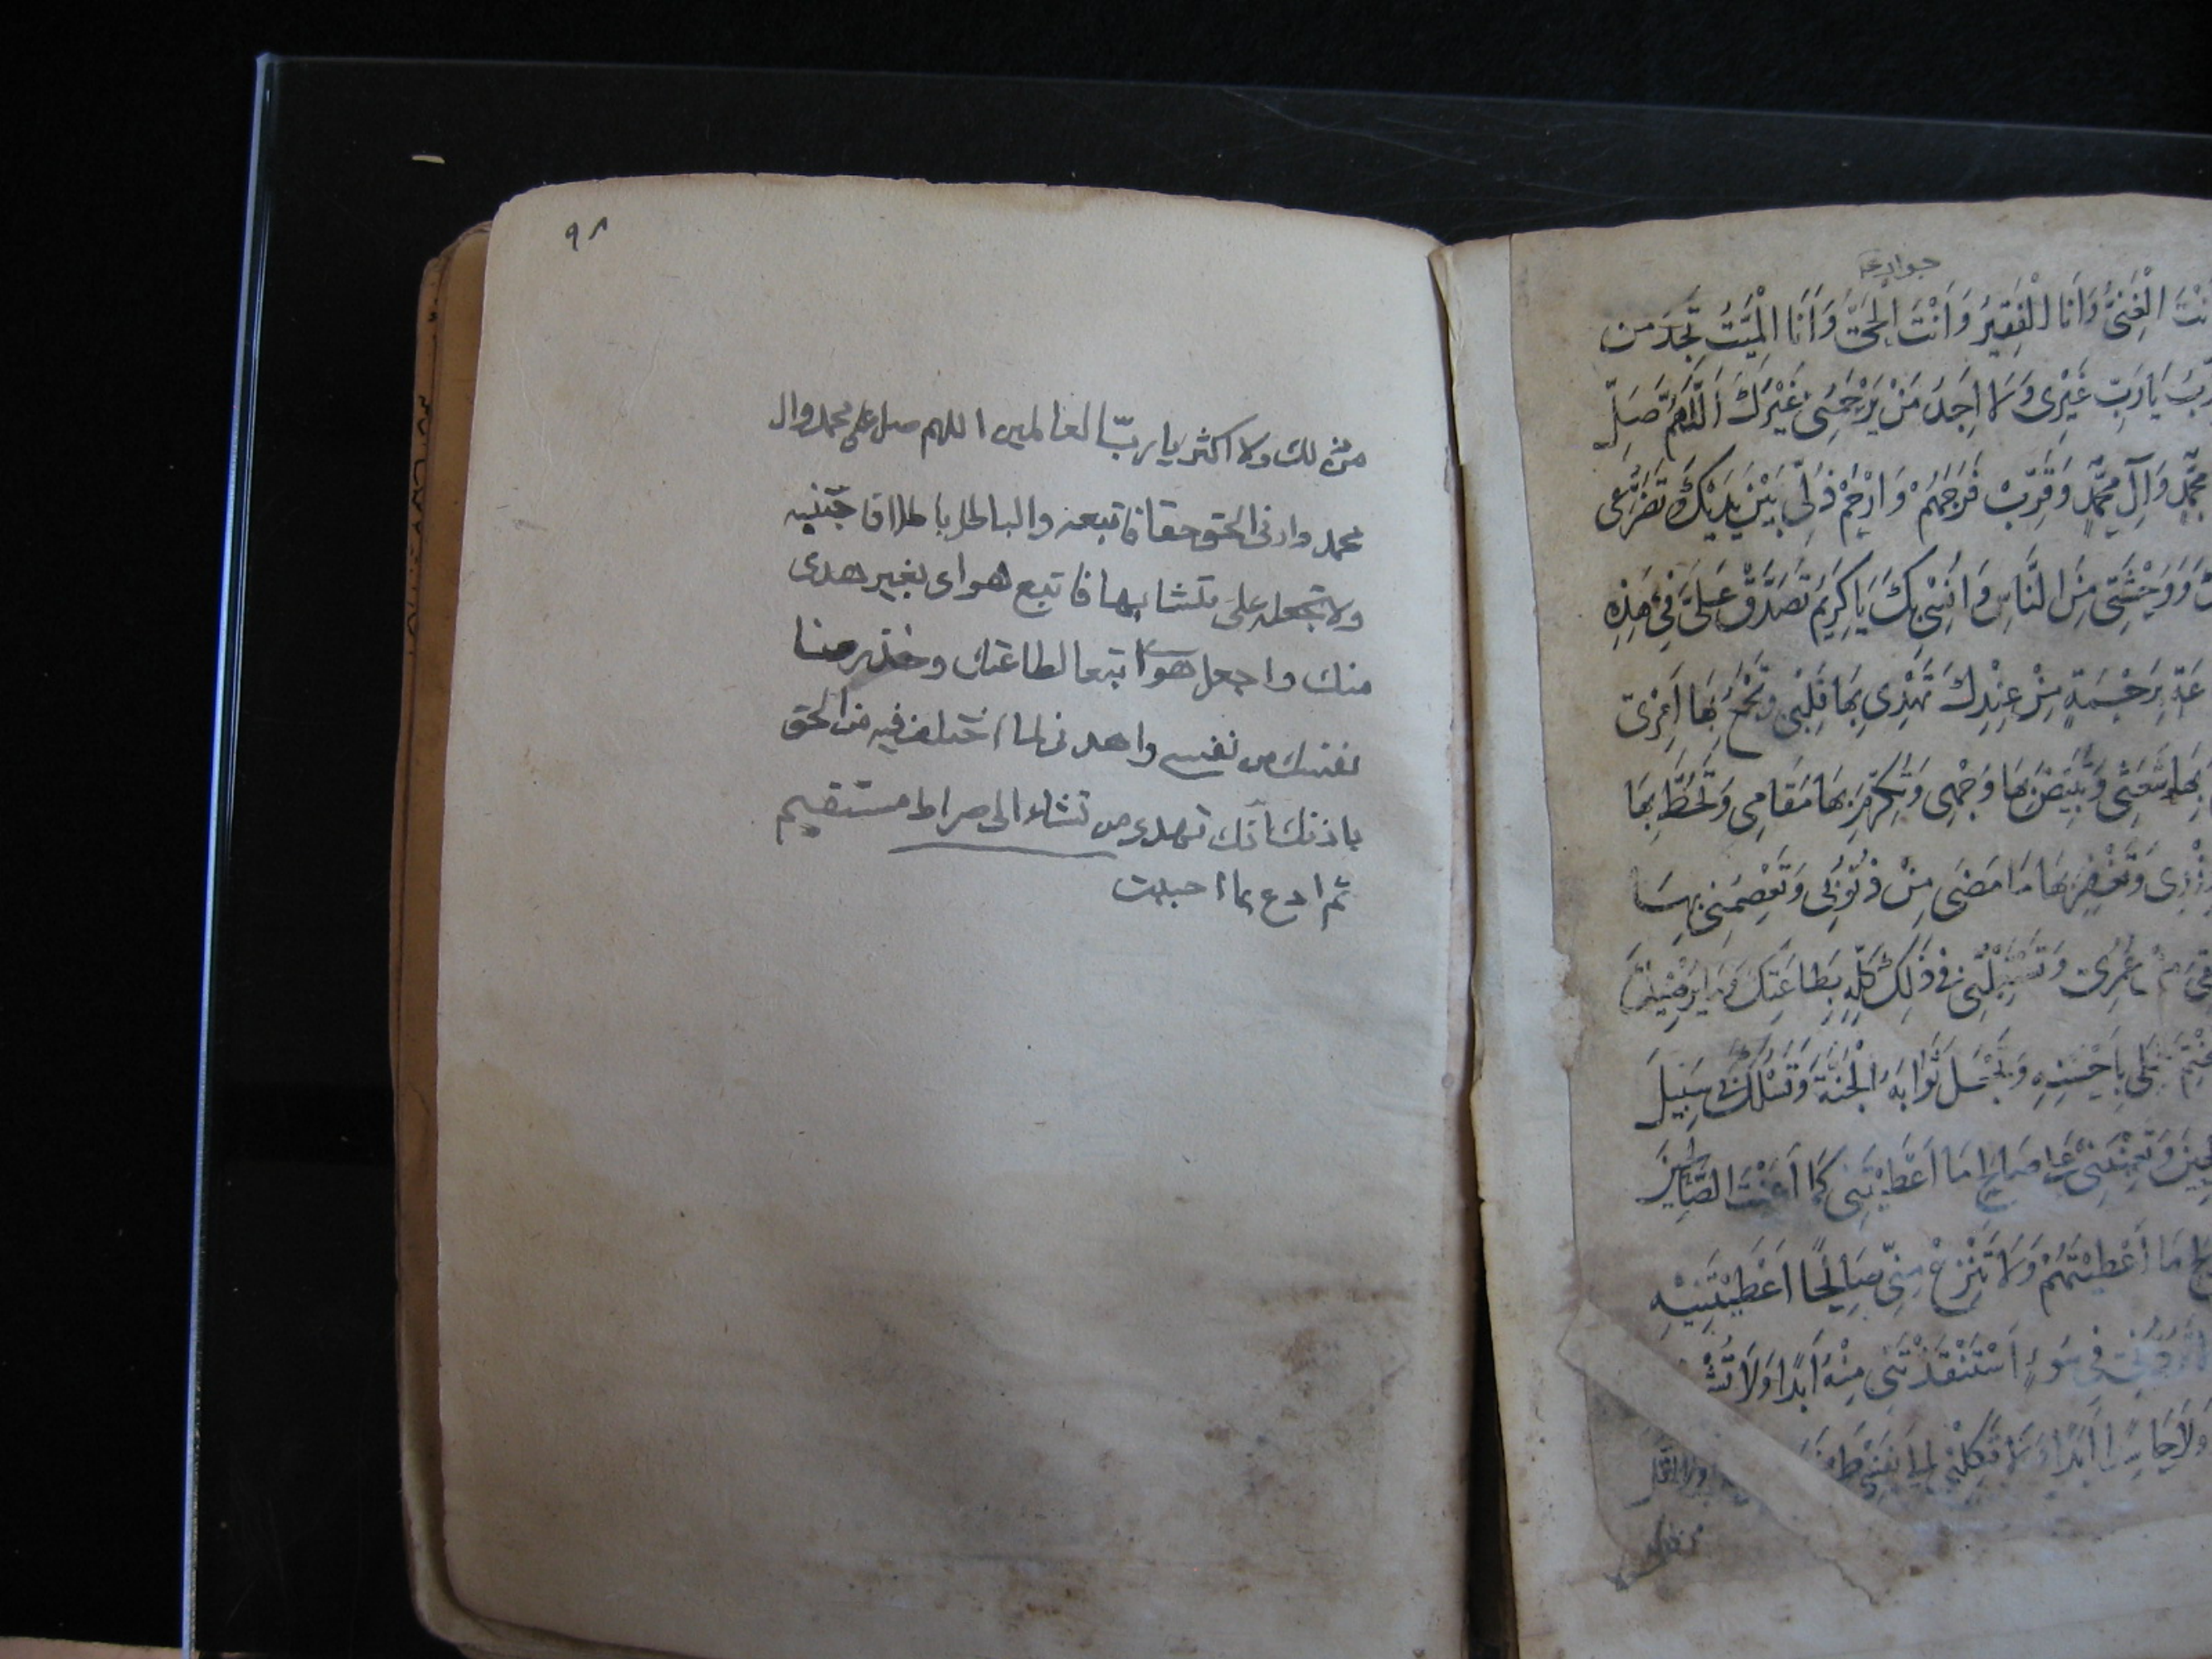 جوارحه
نت الغِنَىُّ وَاَنَا الْفَقِيرُ وَاَنْتَ الحَىُّ وَاَنَا الْمَيِّتُ تَجِدُ مَن
يَا رَبِّ غَيْرِى وَلَا اَجِدُ مَنْ يَرْحَمُنِى غَيْرَكَ اَللّٰهُمَّ صَلِّ
مُحَمَّدٍ وَآلِ مُحَمَّدٍ وَقَرِّبْ فَرَجَهُمْ وَارْحَمْ ذُلِّى بَيْنَ يَدَيْكَ تَضَرُّعِى
وَوَحْشَتِى مِنَ النَّاسِ وَاُنْسِى بِكَ يَا كَرِيمُ تَصَدَّقْ عَلَىَّ فِى هٰذِهِ
بِرَحْمَةٍ مِنْ عِنْدِكَ تَهْدِى بِهَا قَلْبِى وَتَجْمَعُ بِهَا اَمْرِى
بِهَا شَعَثِى وَتُبَيِّضُ بِهَا وَجْهِى وَتُكْرِمُ بِهَا مَقَامِى وَتَحُطُّ بِهَا
وِزْرِى وَتَغْفِرُ بِهَا مَا مَضَى مِنْ ذُنُوبِى وَتَعْصِمُنِى بِهَا
عُمْرِى وَتَسْتَعْمِلُنِى فِى ذٰلِكَ كُلِّهِ بِطَاعَتِكَ وَمَا يُرْضِيكَ
عَمَلِى بِاَحْسَنِهِ وَتَجْعَلَ ثَوَابَهُ الْجَنَّةَ وَتَسْلُكَ سَبِيلَ
وَتُعِينَنِى عَلَى صَالِحِ مَا اَعْطَيْتَنِى كَمَا اَعَنْتَ الصَّالِحِينَ
مَا اَعْطَيْتَهُمْ وَلَا تَنْزِعْ مِنِّى صَالِحًا اَعْطَيْتَنِيهِ
فِى سُوءٍ اسْتَنْقَذْتَنِى مِنْهُ اَبَدًا وَلَا تُشْ
وَلَا حَاسِدًا اَبَدًا وَلَا تَكِلْنِى اِلَى نَفْسِى طَرْفَةَ
٩٨
من ذلك ولا اكثر يا ربّ العالمين اللهم صل على محمد وال
محمد وارنى الحق حقا فاتبعه والباطل باطلا فاجتنبه
ولا تجعله على متشابها فاتبع هواى بغير هدى
منك واجعل هواى تبعا لطاعتك وخذ رضا
نفسك من نفسى واهدنى لما اختلف فيه من الحق
باذنك انك تهدى من تشاء الى صراط مستقيم
ثم ادع بما احببت